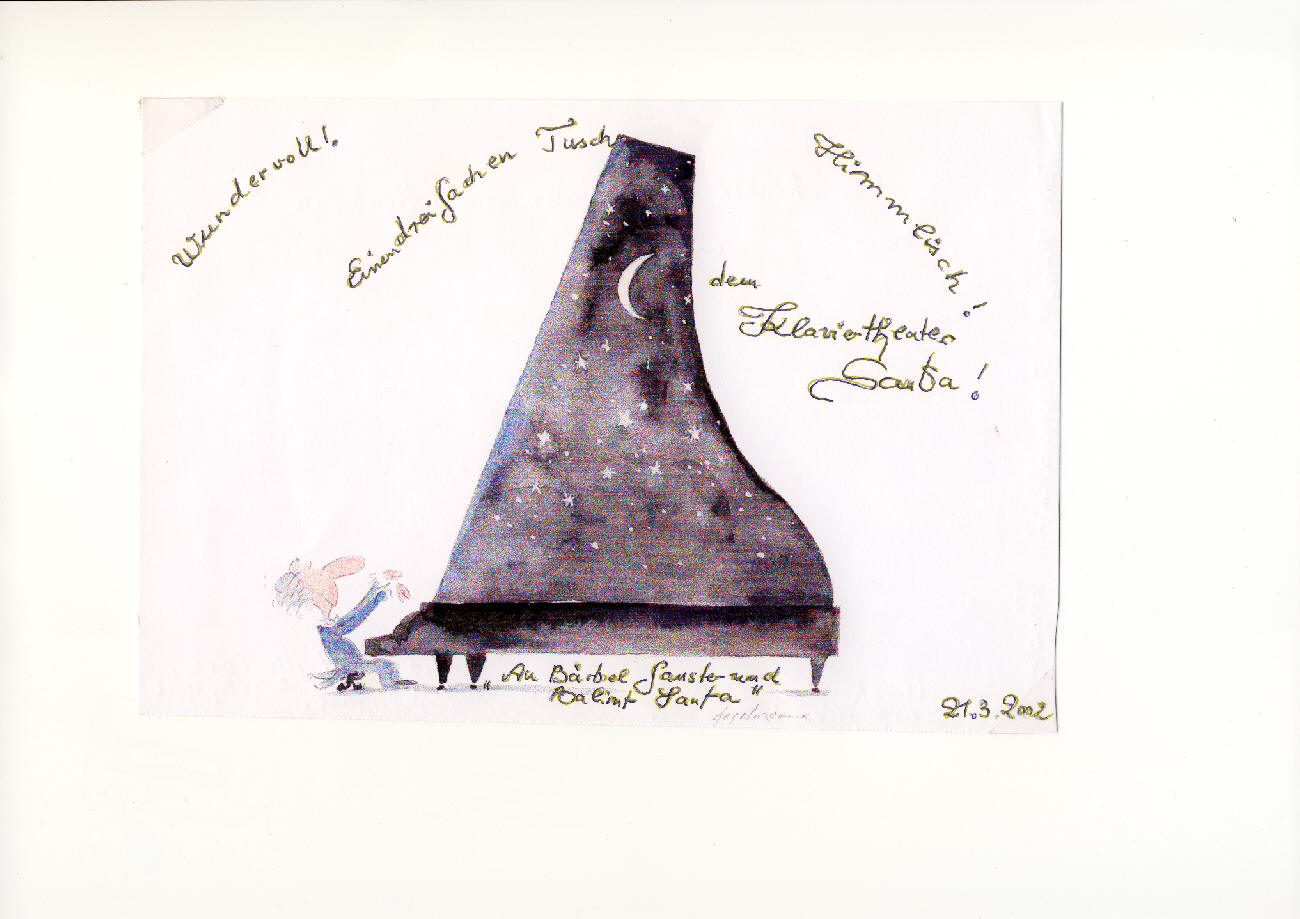 Wundervoll!
Einen dreifachen Tusch
Himmlisch!
dem
Klaviertheater
Santa!
„An Bärbel und
Balint Santa"
21.3.2002